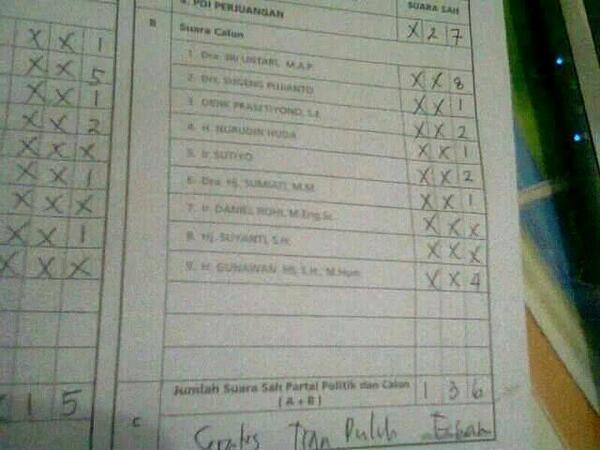 X X 1
X X 5
X X 1
X X 2
X X X
X X 1
X X X
X X 1
X X X
1 5
PDI PERJUANGAN
SUARA SAH
X 2 7
B Suara Calon
1. Dra. SRI UNTARI, M.A.P. X X 8
2. Drs. SUGENG PUJIANTO X X 1
3. PRASETIYONO, S.E. X X 2
4. H. NURUDIN HUDA X X 1
5. Ir SUTIYO X X 2
6. Dra. Hj. SUMIATI, M.M. X X 1
7. Ir. DANIEL ROHI, M.Eng.Sc. X X X
8. Hj. SUYANTI, S.H. X X X
9. H. GUNAWAN HS, S.H., M.Hum X X 4
Jumlah Suara Sah Partai Politik dan Calon
( A + B )
1 3 6
C
Puluh